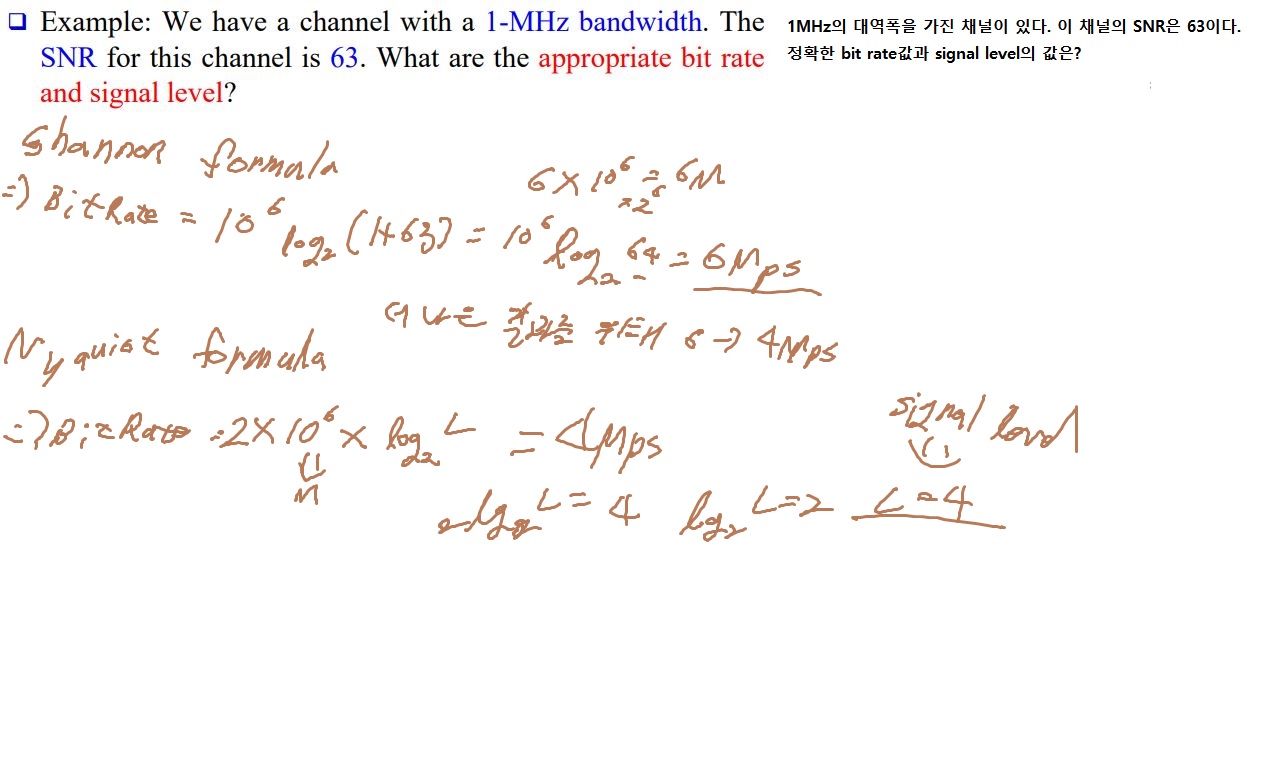 ❑ Example: We have a channel with a 1-MHz bandwidth. The
SNR for this channel is 63. What are the appropriate bit rate
and signal level?
1MHz의 대역폭을 가진 채널이 있다. 이 채널의 SNR은 63이다.
정확한 bit rate값과 signal level의 값은?
Shannon formula
6 x 10^6 = 6M
=> BitRate = 10^6 log₂(1+63) = 10^6 log₂ 64 = 6Mps
6 -> 4Mps
Nyquist formula
=> BitRate = 2 x 10^6 x log₂ L = 4Mps
M
signal level
log₂ L = 2
L = 4